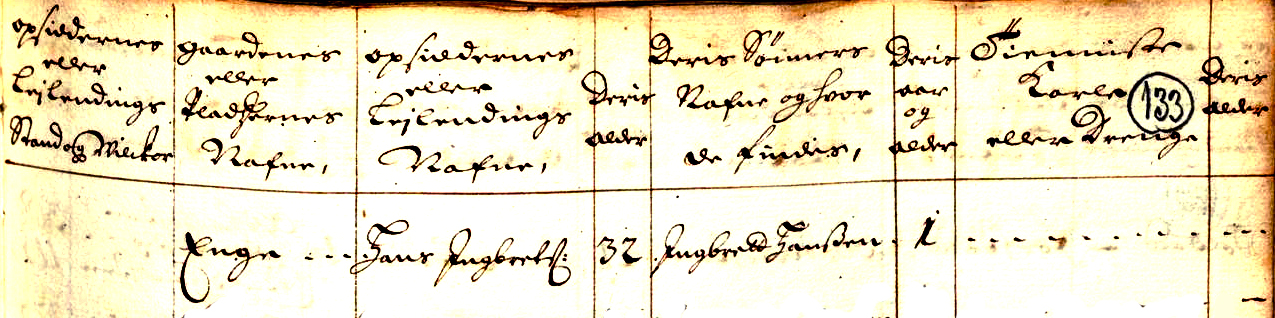 opsiddernes
eller
Leilendings
Stand og Wilckor
gaardenes
eller
Pladzernes
Nafne,
opsiddernes
eller
Leilendings
Nafne,
Deris
alder
Deris Sønners
Nafne og hvor
de findes,
Deris
aar
og
alder
Tienniste
Karle
eller Drenge
133
Deris
alder
Enge ... Hans Ingbrets: 32 Ingbrett Hanßen 1